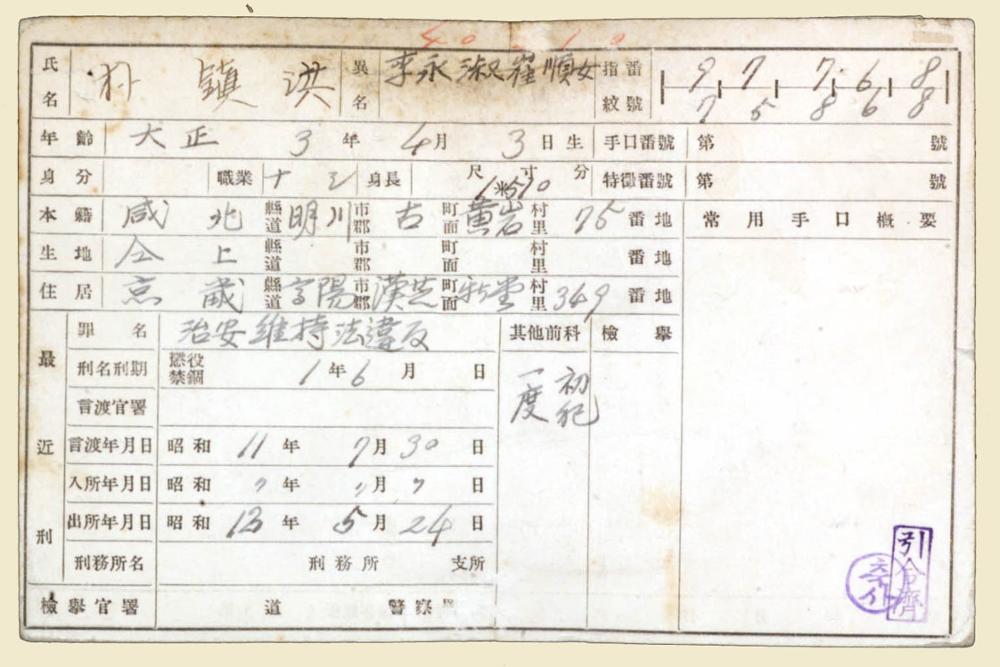 40 10
氏名 朴鎭洪 異名 李永淑 崔順女 指紋番號 9 7 7 6 8
7 5 8 6 8
年齡 大正 3年 4月 3日生 手口番號 第 號
身分 職業 ナシ 身長 尺 寸 分 特徵番號 第 號
本籍 咸北 縣道 明川 市郡 古 町面 黃岩 村里 75 番地 常用手口概要
生地 仝上 縣道 市郡 町面 村里 番地
住居 京畿 縣道 高陽 市郡 漢芝 町面 新堂 村里 349 番地
最近刑
罪名 治安維持法違反 其他前科 檢擧
刑名刑期 懲役 禁錮 1年6月 日 初犯
一度
言渡官署
言渡年月日 昭和 11年 7月 30日
入所年月日 昭和 〃年 〃月 〃日
出所年月日 昭和 13年 5月 24日
刑務所名 刑務所 支所
檢擧官署 道 警察署
引合濟